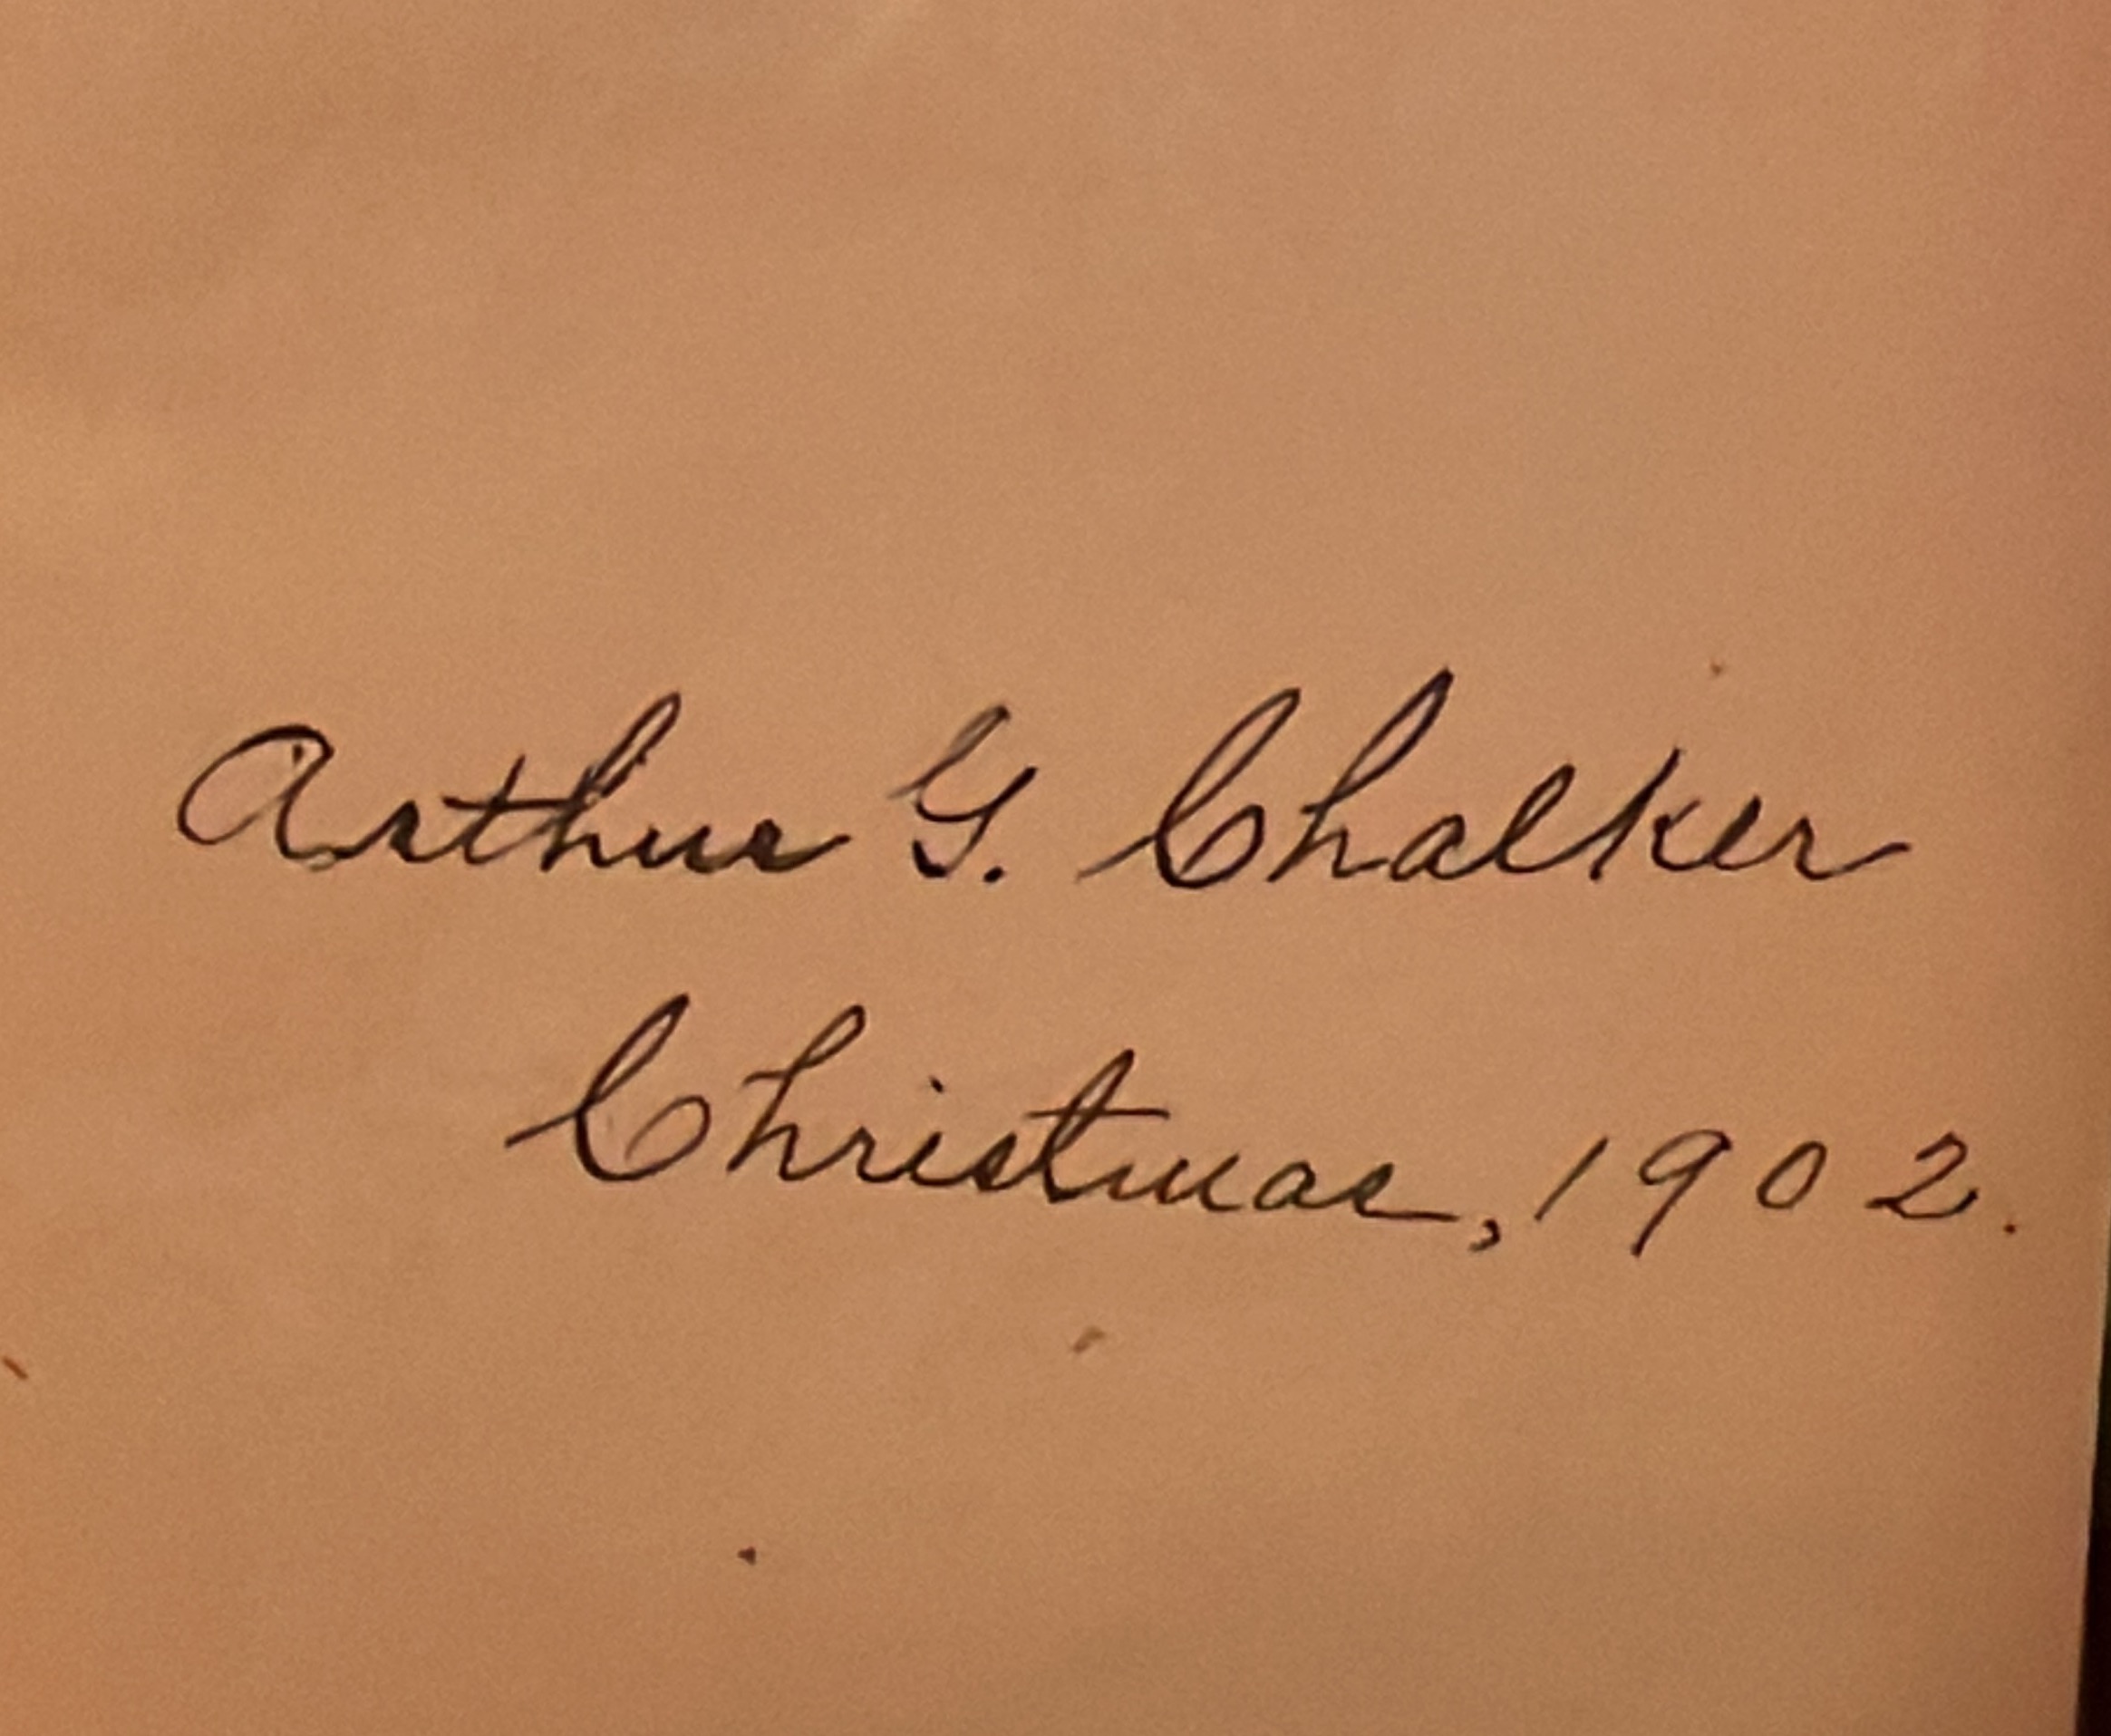 Arthur G. Chalker
Christmas, 1902.